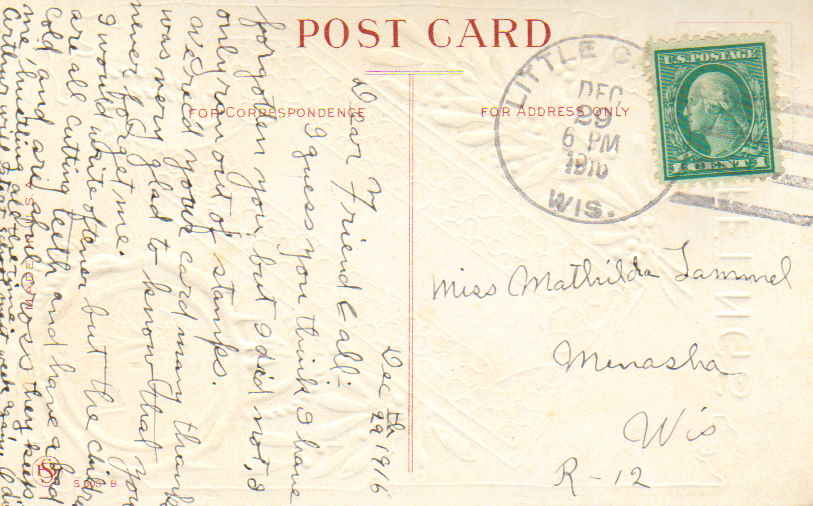 POST CARD
FOR CORRESPONDENCE
FOR ADDRESS ONLY
LITTLE C
DEC
29
6 PM
1916
WIS.
U.S. POSTAGE
1 CENT 1
Miss Mathilda Lammel
Menasha
Wis
R-12
Dec 29th 1916
Dear Friend all:-
I guess you think I have
forgotten you but I did not, I
only ran out of stamps.
We rec'd your card many thanks
was very glad to know that you
never forget me.
I would write oftener but the children
are all cutting teeth and have a bad
cold and are awful cross they keep
me hustling all the time
S